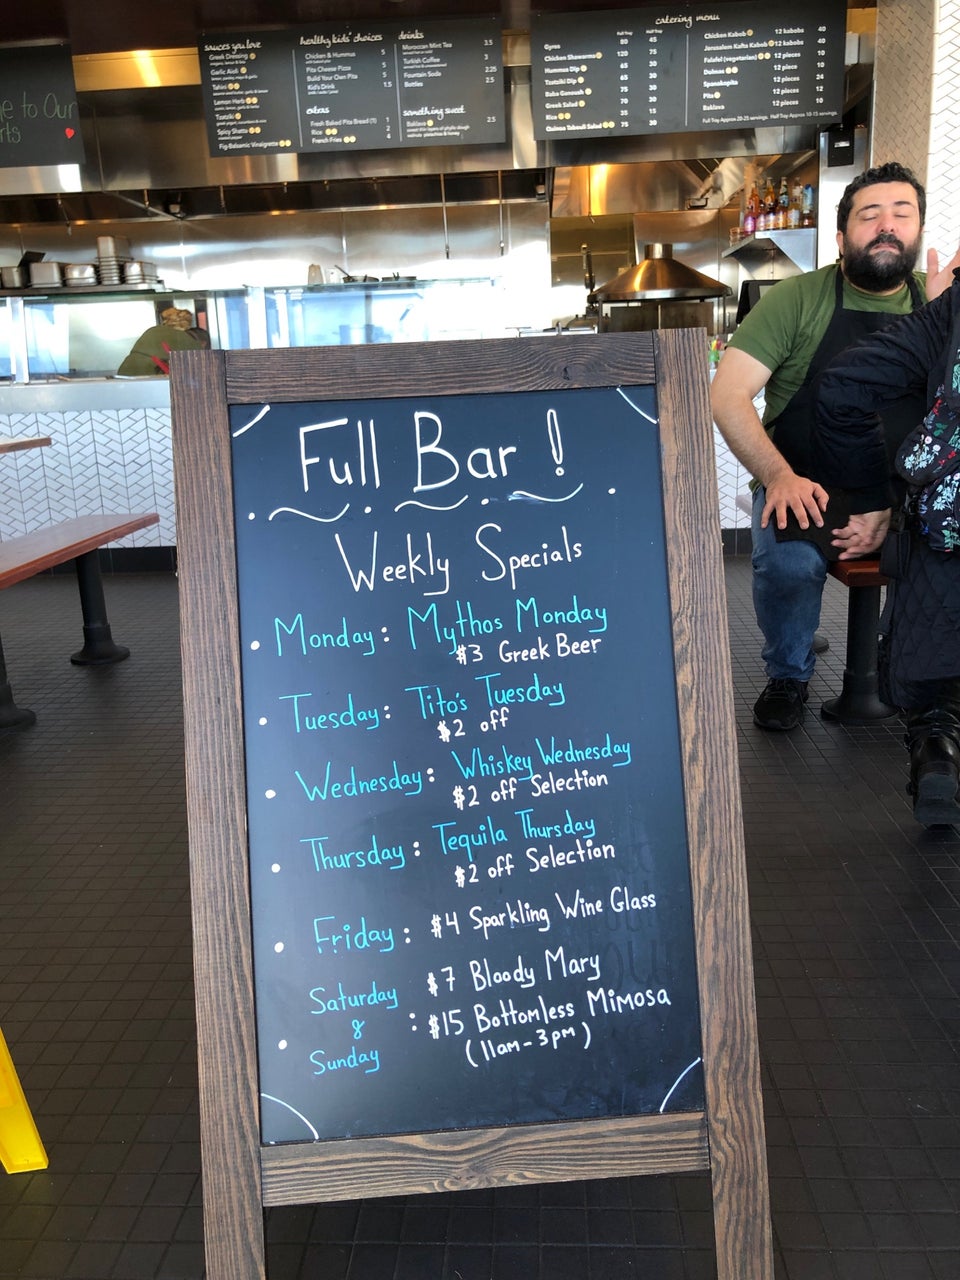 e to Our
rts
sauces you love
Greek Dressing
Garlic Aioli
Tahini
Lemon Herb
Tzatziki
Spicy Shatta
Fig-Balsamic Vinaigrette
healthy kids' choices
Chicken & Hummus 5
Pita Cheese Pizza 5
Build Your Own Pita 5
Kid's Drink 1.5
extras
Fresh Baked Pita Bread (1) 1
Rice 2
French Fries 4
drinks
Moroccan Mint Tea 3.5
Turkish Coffee 3
Fountain Soda 2.25
Bottles 2.5
something sweet
Baklava 2.5
catering menu
Gyros 80 45
Chicken Shawarma 120 75
Hummus Dip 65 35
Tzatziki Dip 65 30
Baba Ganoush 65 30
Greek Salad 70 35
Rice 30 15
Quinoa Tabouli Salad 75 30
Chicken Kabob 12 kabobs 40
Jerusalem Kafta Kabob 12 kabobs 40
Falafel (vegetarian) 12 pieces 10
Dolmas 12 pieces
Spanakopita 12 pieces 24
Pita 12 pieces
Baklava 12 pieces
Full Tray Approx 20-25 servings. Half Tray Approx 10-15 servings.
Full Bar!
Weekly Specials
• Monday: Mythos Monday
$3 Greek Beer
• Tuesday: Tito's Tuesday
$2 off
• Wednesday: Whiskey Wednesday
$2 off Selection
• Thursday: Tequila Thursday
$2 off Selection
• Friday: $4 Sparkling Wine Glass
• Saturday & Sunday: $7 Bloody Mary
$15 Bottomless Mimosa
(11am-3pm)